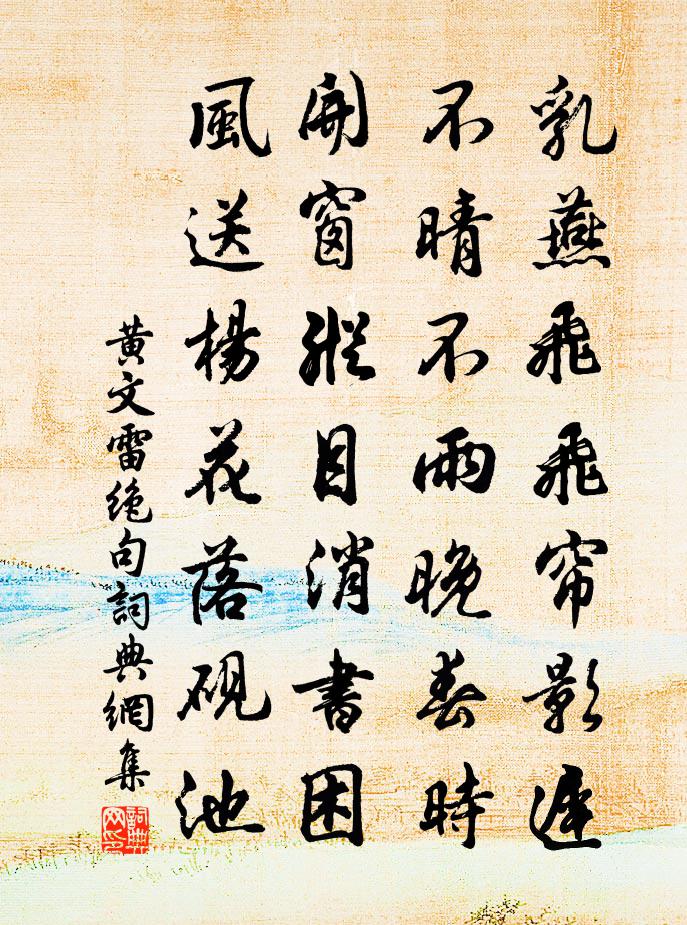 乳燕飛飛帘影遲
不晴不雨晚春時
開窗縱目消書困
風送楊花落硯池
黃文雷絕句詞典網集
詞典
网印